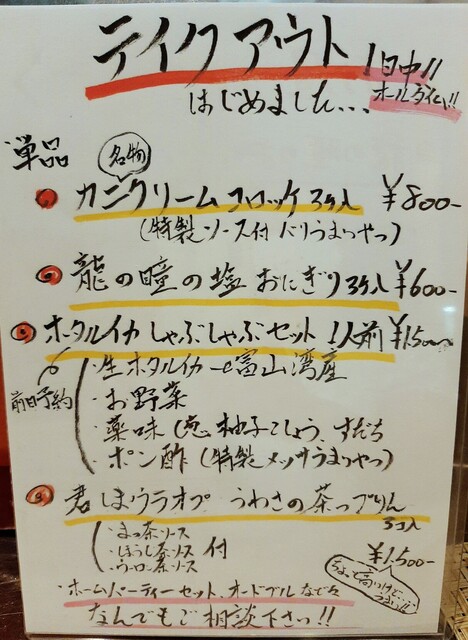 テイクアウト
1日中!!
オールタイム!!
はじめました...
単品
名物
カニクリームコロッケ3ヶ入 ¥800-
(特製ソース付 バリうまいやつ)
龍の瞳の塩おにぎり3ヶ入 ¥600-
ホタルイカしゃぶしゃぶセット 1人前 ¥1500-
前日予約
・生ホタルイカ 富山湾産
・お野菜
・薬味(葱 柚子こしょう、すだち
・ポン酢(特製メッサうまいやつ)
君しまウラオプ うわさの茶っぷりん
3コ入
・まっ茶ソース
・ほうじ茶ソース 付
・ウーロン茶ソース
¥1,500-
ちょっと高いけど...
うまい!!
・ホームパーティーセット、オードブルなど々
なんでもご相談下さい!!